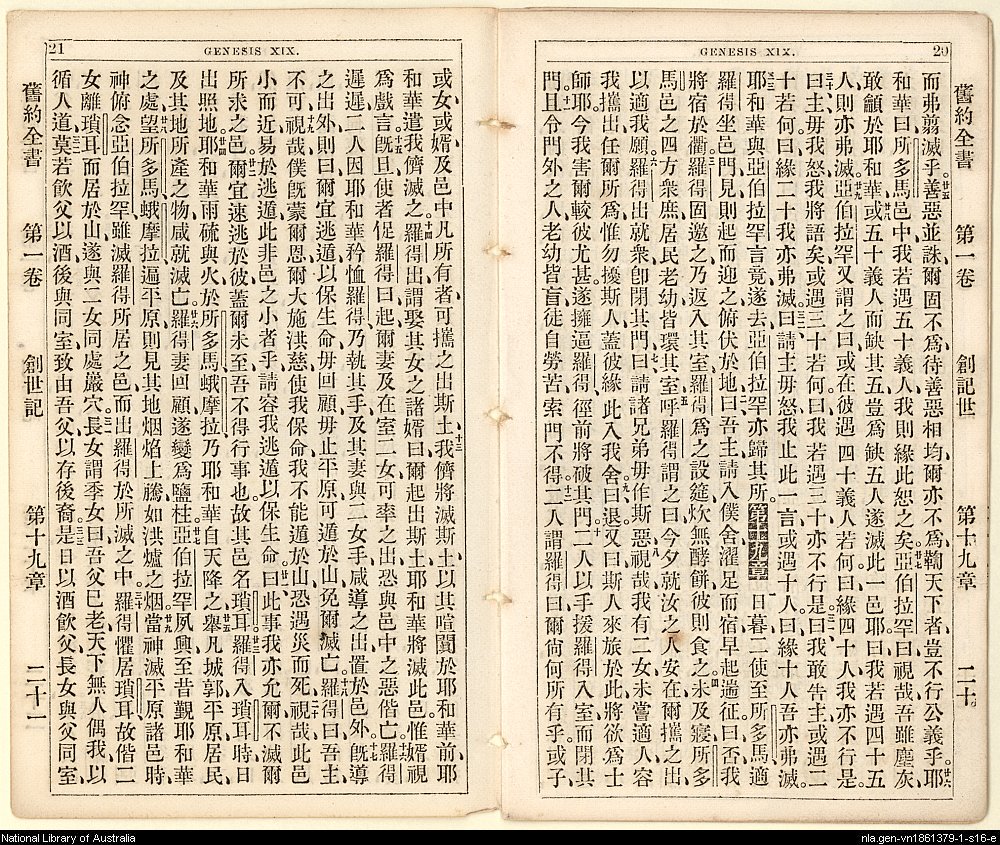 GENESIS XIX.
20
舊約全書 第一卷 創記世 第十九章 二十
而弗翦滅乎。善惡並誅爾固不爲待善惡相均爾亦不爲鞫天下者豈不行公義乎。耶
和華曰所多馬邑中我若遇五十義人我則緣此恕之矣亞伯拉罕曰視哉吾雖塵灰
敢籲於耶和華或五十義人而缺其五豈爲缺五人遂滅此一邑耶曰我若遇四十五
人則亦弗滅亞伯拉罕又謂之曰或在彼遇四十義人若何曰緣四十人我亦不行是
曰主毋我怒我將語矣或遇三十若何曰我若遇三十亦不行是曰我敢告主或遇二
十若何曰緣二十我亦弗滅曰請主毋怒我止此一言或遇十人曰緣十人吾亦弗滅
耶和華與亞伯拉罕言竟遂去亞伯拉罕亦歸其所。第十九章 日暮二使至所多馬適
羅得坐邑門見則起而迎之俯伏於地曰吾主請入僕舍濯足而宿早起遄征曰否我
將宿於衢羅得固邀之乃返入其室羅得爲之設筵炊無酵餅彼則食之未及寢所多
馬邑之四方衆庶居民老幼皆環其室呼羅得謂之曰今夕就汝之人安在爾攜之出
以適我願羅得出就衆卽閉其門曰請諸兄弟毋作斯惡視哉我有二女未嘗適人容
我攜出任爾所爲惟勿擾斯人蓋彼緣此入我舍曰退又曰斯人來旅於此將欲爲士
師耶今我害爾較彼尤甚遂擁逼羅得徑前將破其門二人以手援羅得入室而閉其
門且令門外之人老幼皆盲徒自勞苦索門不得二人謂羅得曰爾尙何所有乎或子
21
GENESIS XIX.
或女或婿及邑中凡所有者可攜之出斯土我儕將滅斯土以其喧闐於耶和華前耶
和華遣我儕滅之。羅得出謂娶其女之諸婿曰爾起出斯土耶和華將滅此邑惟婿視
爲戲言旣旦使者促羅得曰起爾妻及在室二女可率之出恐與邑中之惡偕亡羅得
遲遲二人因耶和華矜恤羅得乃執其手及其妻與二女手咸導之出置於邑外旣導
之出外則曰爾宜逃遁以保生命毋回顧毋止平原可遁於山免爾滅亡羅得曰吾主
不可視哉僕旣蒙爾恩爾大施洪慈使我保命我不能遁於山恐遇災而死視哉此邑
小而近易於逃遁此非邑之小者乎請容我逃遁以保生命曰此事我亦允爾不滅爾
所求之邑爾宜速逃於彼蓋爾未至吾不得行事也故其邑名瑣耳羅得入瑣耳時日
出照地耶和華雨硫與火於所多馬蛾摩拉乃耶和華自天降之舉凡城郭平原居民
及其地所產之物咸就滅亡羅得妻回顧遂變爲鹽柱亞伯拉罕夙興至昔覲耶和華
之處望所多馬蛾摩拉遍平原則見其地烟焰上騰如洪爐之烟當神滅平原諸邑時
神俯念亞伯拉罕雖滅羅得所居之邑而出羅得於所滅之中羅得懼居瑣耳故偕二
女離瑣耳而居於山遂與二女同處巖穴長女謂季女曰吾父已老天下無人偶我以
循人道莫若飲父以酒後與同室致由吾父以存後裔是日以酒飲父長女與父同室
舊約全書 第一卷 創世記 第十九章 二十一
National Library of Australia
nla.gen-vn1861379-1-s16-e